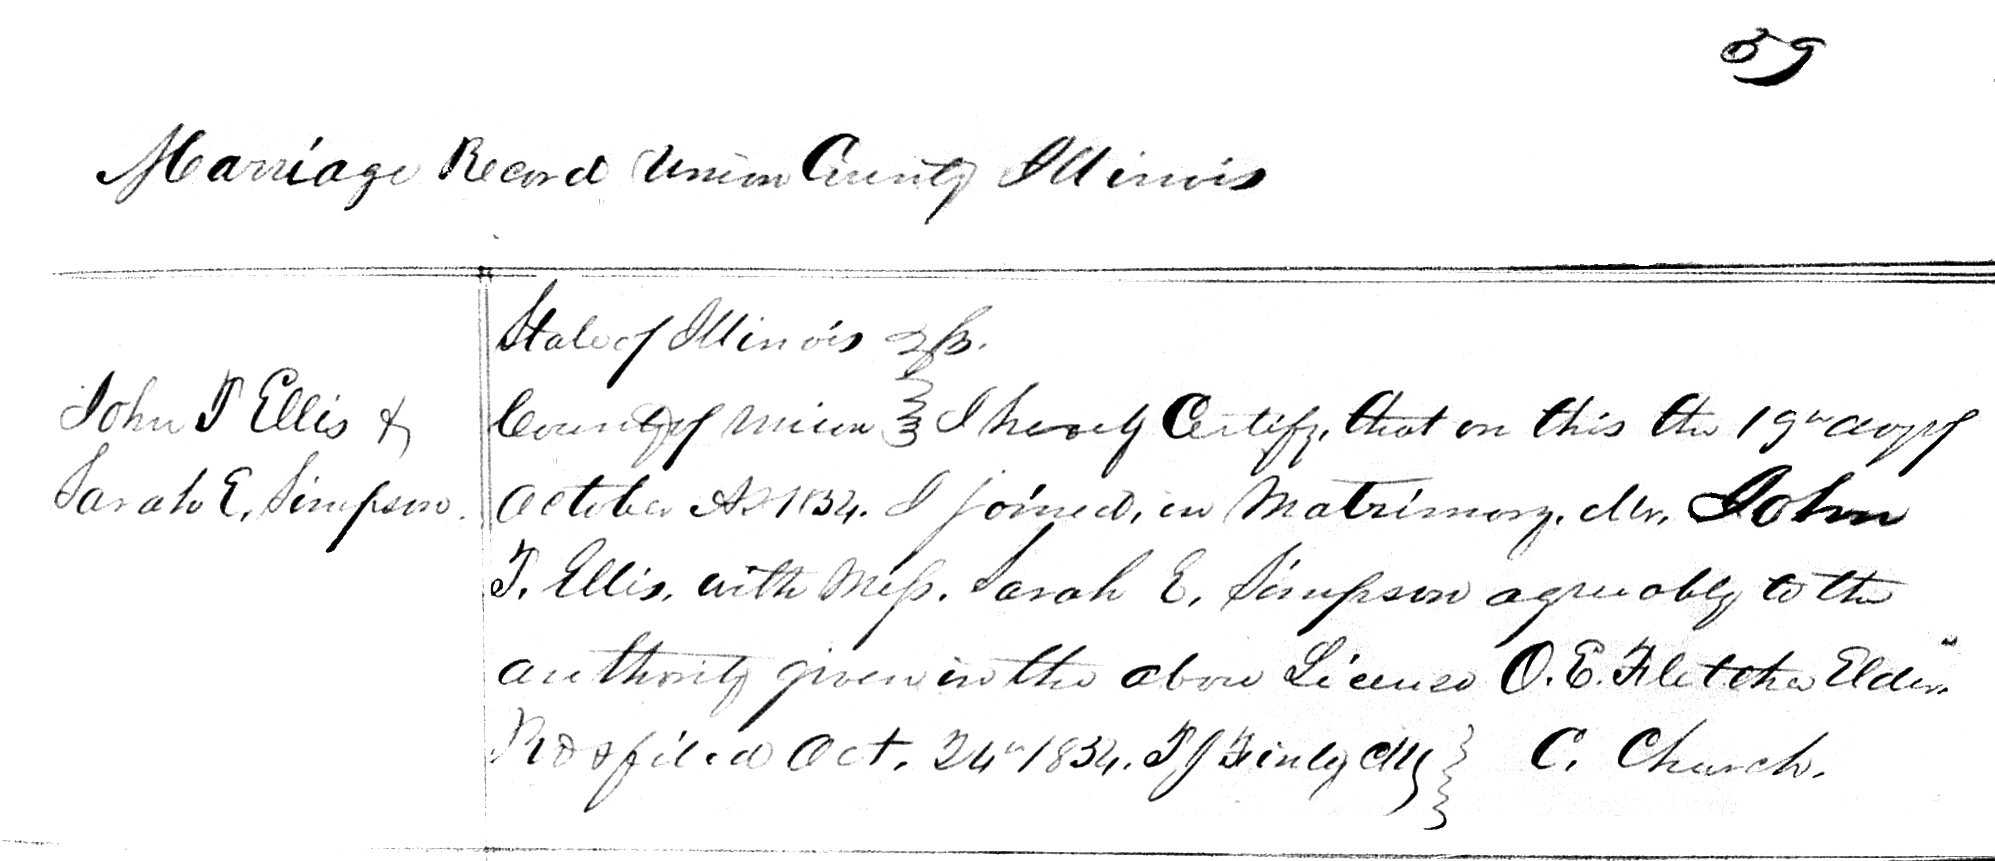 59
Marriage Record Union County Illinois
State of Illinois } ss.
John T Ellis &
County of Union } I hereby Certify, that on this the 19th day of
Sarah E. Simpson.
October AD 1854. I joined, in Matrimony, Mr. John
T. Ellis, with Miss. Sarah E. Simpson agreeably to the
authority given in the above License O. E. Fletcher Elder.
Recd & filed Oct. 24th 1854. T J Finley Clk } C. Church.